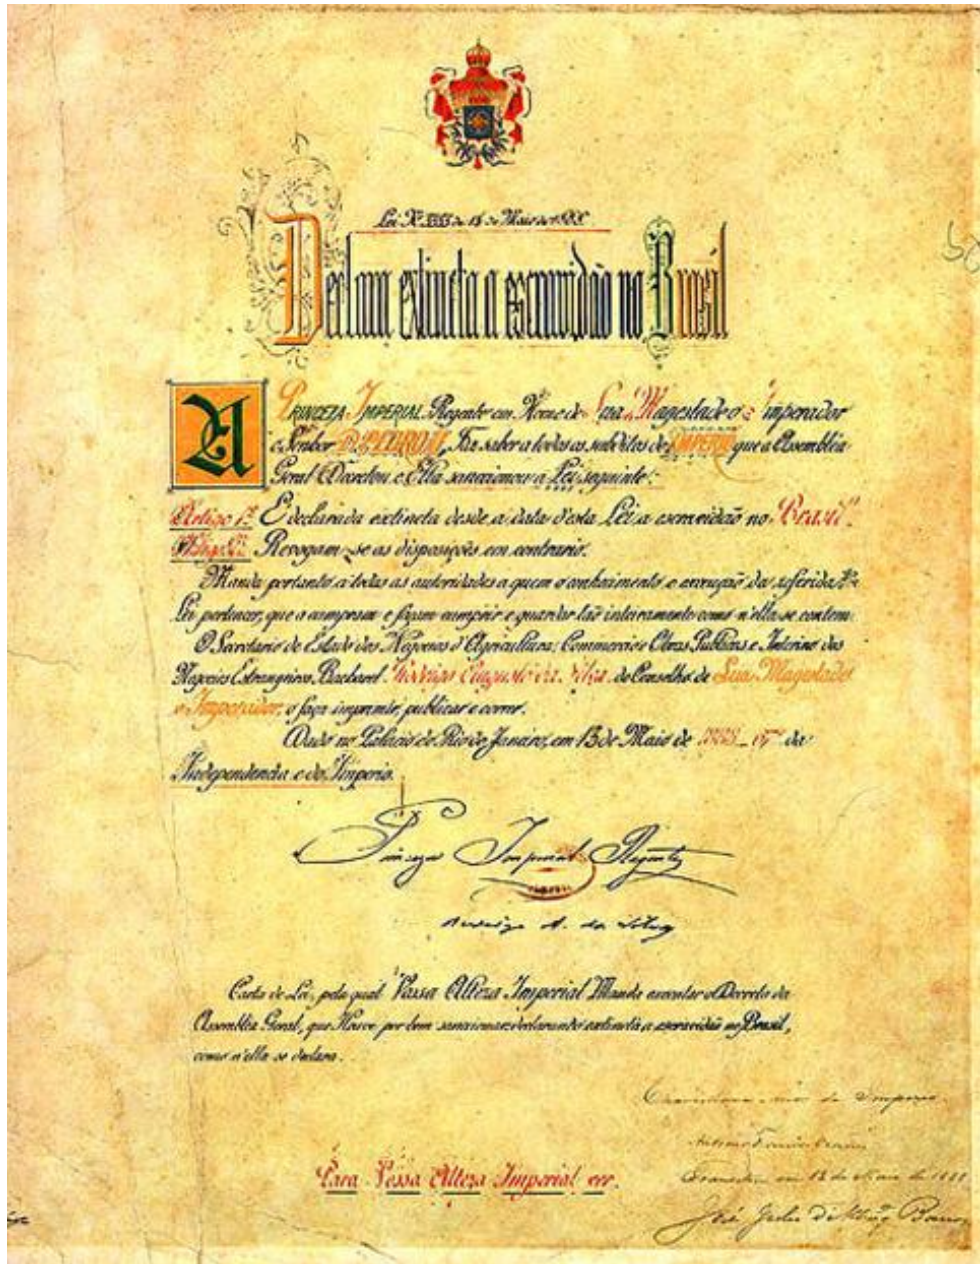 Lei Nº 3353 de 13 de Maio de 1888.
Declara extincta a escravidão no Brasil
A PRINCEZA IMPERIAL Regente em Nome de Sua Magestade o Imperador
o Senhor D. PEDRO II, Faz saber a todos os subditos do IMPERIO que a Assembléa
Geral Decretou e Ella sanccionou a Lei seguinte:
Artigo 1º É declarada extincta desde a data d'esta Lei a escravidão no Brasil.
Artigo 2º Revogam-se as disposições em contrario.
Manda portanto a todas as autoridades a quem o conhecimento e execução da referida
Lei pertencer, que a cumpram e façam cumprir e guardar tão inteiramente como n'ella se contem.
O Secretario de Estado dos Negocios d'Agricultura, Commercio e Obras Publicas e Interino dos
Negocios Estrangeiros, Bacharel Rodrigo Augusto da Silva, do Conselho de Sua Magestade
o Imperador, o faça imprimir, publicar e correr.
Dado no Palacio do Rio de Janeiro, em 13 de Maio de 1888 - 67º da
Independencia e do Imperio.
Princeza Imperial Regente
Rodrigo A. da Silva
Carta de Lei, pela qual Vossa Alteza Imperial Manda executar o Decreto da
Assembléa Geral, que Houve por bem sanccionar declarando extincta a escravidão no Brasil,
como n'ella se declara.
Para Vossa Alteza Imperial ver.
Chancellaria-mór do Imperio
Transitou em 13 de Maio de 1888
José Julio de Albuqº Barros
50